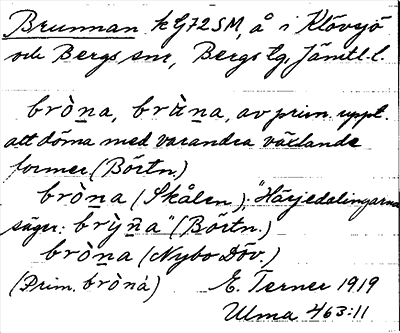 Brunnan k G72SM, å i Klövsjö
och Bergs snr, Bergs tg, Jämtl. l.
bròna, bràna, av prim. uppt.
att döma med varandra växlande
former (Börtn.)
bròna (Skålen). "Härjedalingarna
säger: brỳna" (Börtn.)
bròna (Nybo Döv.)
(Prim. bròná) E. Terner 1919
Ulma 463:11